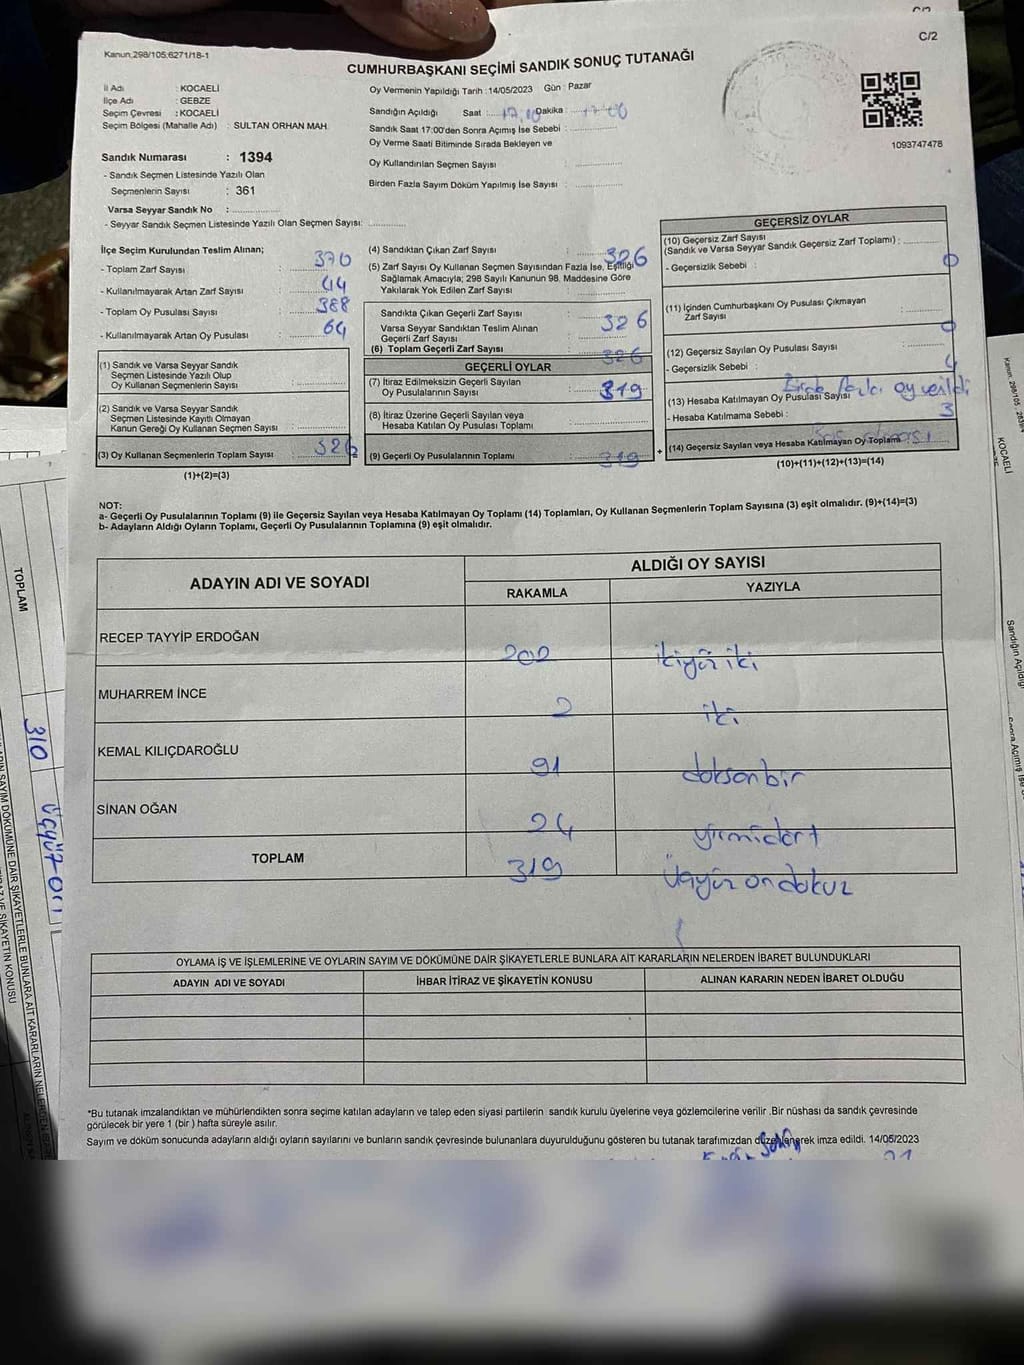 C/2
Kanun 298/105;6271/18-1
CUMHURBAŞKANI SEÇİMİ SANDIK SONUÇ TUTANAĞI
İl Adı : KOCAELİ
İlçe Adı : GEBZE
Seçim Çevresi : KOCAELİ
Seçim Bölgesi (Mahalle Adı) : SULTAN ORHAN MAH.
Sandık Numarası : 1394
- Sandık Seçmen Listesinde Yazılı Olan
Seçmenlerin Sayısı : 361
Varsa Seyyar Sandık No :
- Seyyar Sandık Seçmen Listesinde Yazılı Olan Seçmen Sayısı:
Oy Vermenin Yapıldığı Tarih :14/05/2023 Gün : Pazar
Sandığın Açıldığı Saat : Dakika :
Sandık Saat 17:00'den Sonra Açımış İse Sebebi :
Oy Verme Saati Bitiminde Sırada Bekleyen ve
Oy Kullandırılan Seçmen Sayısı :
Birden Fazla Sayım Döküm Yapılmış İse Sayısı :
1093747478
İlçe Seçim Kurulundan Teslim Alınan;
- Toplam Zarf Sayısı : 370
- Kullanılmayarak Artan Zarf Sayısı : 44
- Toplam Oy Pusulası Sayısı : 388
- Kullanılmayarak Artan Oy Pusulası : 64
(1) Sandık ve Varsa Seyyar Sandık
Seçmen Listesinde Yazılı Olup
Oy Kullanan Seçmenlerin Sayısı :
(2) Sandık ve Varsa Seyyar Sandık
Seçmen Listesinde Kayıtlı Olmayan
Kanun Gereği Oy Kullanan Seçmen Sayısı :
(3) Oy Kullanan Seçmenlerin Toplam Sayısı : 326
(1)+(2)=(3)
(4) Sandıktan Çıkan Zarf Sayısı : 326
(5) Zarf Sayısı Oy Kullanan Seçmen Sayısından Fazla İse, Eşitliği
Sağlamak Amacıyla; 298 Sayılı Kanunun 98. Maddesine Göre
Yakılarak Yok Edilen Zarf Sayısı :
Sandıkta Çıkan Geçerli Zarf Sayısı :
Varsa Seyyar Sandıktan Teslim Alınan 326
Geçerli Zarf Sayısı :
(6) Toplam Geçerli Zarf Sayısı : 326
GEÇERLİ OYLAR
(7) İtiraz Edilmeksizin Geçerli Sayılan
Oy Pusulasının Sayısı : 319
(8) İtiraz Üzerine Geçerli Sayılan veya
Hesaba Katılan Oy Pusulası Toplamı :
(9) Geçerli Oy Pusulalarının Toplamı : 319
GEÇERSİZ OYLAR
(10) Geçersiz Zarf Sayısı
(Sandık ve Varsa Seyyar Sandık Geçersiz Zarf Toplamı) :
- Geçersizlik Sebebi : 0
(11) İçinden Cumhurbaşkanı Oy Pusulası Çıkmayan
Zarf Sayısı :
0
(12) Geçersiz Sayılan Oy Pusulası Sayısı :
- Geçersizlik Sebebi : 4
oy verildi
(13) Hesaba Katılmayan Oy Pusulası Sayısı
- Hesaba Katılmama Sebebi : 3
(14) Geçersiz Sayılan veya Hesaba Katılmayan Oy Toplamı
+
(10)+(11)+(12)+(13)=(14)
NOT:
a- Geçerli Oy Pusulalarının Toplamı (9) ile Geçersiz Sayılan veya Hesaba Katılmayan Oy Toplamı (14) Toplamları, Oy Kullanan Seçmenlerin Toplam Sayısına (3) eşit olmalıdır. (9)+(14)=(3)
b- Adayların Aldığı Oyların Toplamı, Geçerli Oy Pusulalarının Toplamına (9) eşit olmalıdır.
ADAYIN ADI VE SOYADI
ALDIĞI OY SAYISI
RAKAMLA YAZIYLA
RECEP TAYYİP ERDOĞAN 202 ikiyüz iki
MUHARREM İNCE 2 iki
KEMAL KILIÇDAROĞLU 91 doksanbir
SİNAN OĞAN 24 yirmidört
TOPLAM 319 Üçyüz ondokuz
OYLAMA İŞ VE İŞLEMLERİNE VE OYLARIN SAYIM VE DÖKÜMÜNE DAİR ŞİKAYETLERLE BUNLARA AİT KARARLARIN NELERDEN İBARET BULUNDUKLARI
ADAYIN ADI VE SOYADI İHBAR İTİRAZ VE ŞİKAYETİN KONUSU ALINAN KARARIN NEDEN İBARET OLDUĞU
*Bu tutanak imzalandıktan ve mühürlendikten sonra seçime katılan adayların ve talep eden siyasi partilerin sandık kurulu üyelerine veya gözlemcilerine verilir .Bir nüshası da sandık çevresinde
görülecek bir yere 1 (bir ) hafta süreyle asılır.
Sayım ve döküm sonucunda adayların aldığı oyların sayılarını ve bunların sandık çevresinde bulunanlara duyurulduğunu gösteren bu tutanak tarafımızdan düzenlenerek imza edildi. 14/05/2023
TOPLAM
310
KOCAELİ
Sandığın Açıldığı